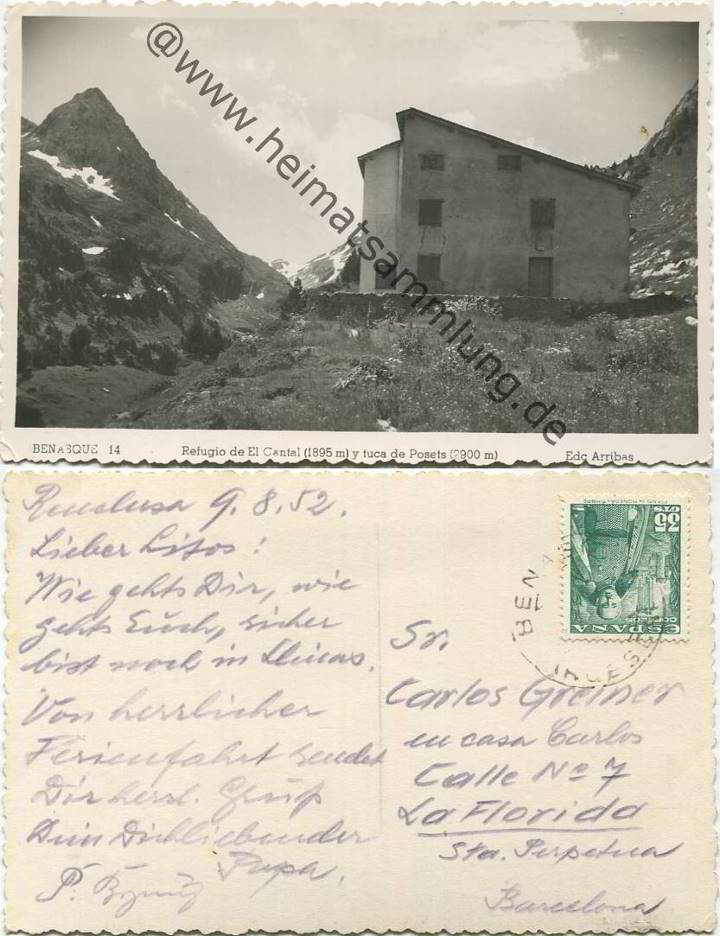 @www.heimatsammlung.de
BENASQUE 14 Refugio de El Cantal (1895 m) y tuca de Posets (2900 m) Edc Arribas
Renclusa 9.8.52.
Lieber Litos!
Wie gehts Dir, wie
gehts Euch, sicher
bist noch in Llinas.
Von herrlicher
Ferienfahrt sendet
Dir herzl. Gruß
Dein Dichliebender
Papa.
P.
35
CTS
CORREOS
ESPAÑA
BEN
Sr.
Carlos Greiner
en casa Carlos
Calle No 7
La Florida
Sta. Perpetua
Barcelona